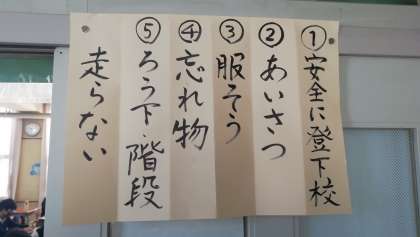 ①安全に登下校
②あいさつ
③服そう
④忘れ物
⑤ろう下・階段
走らない